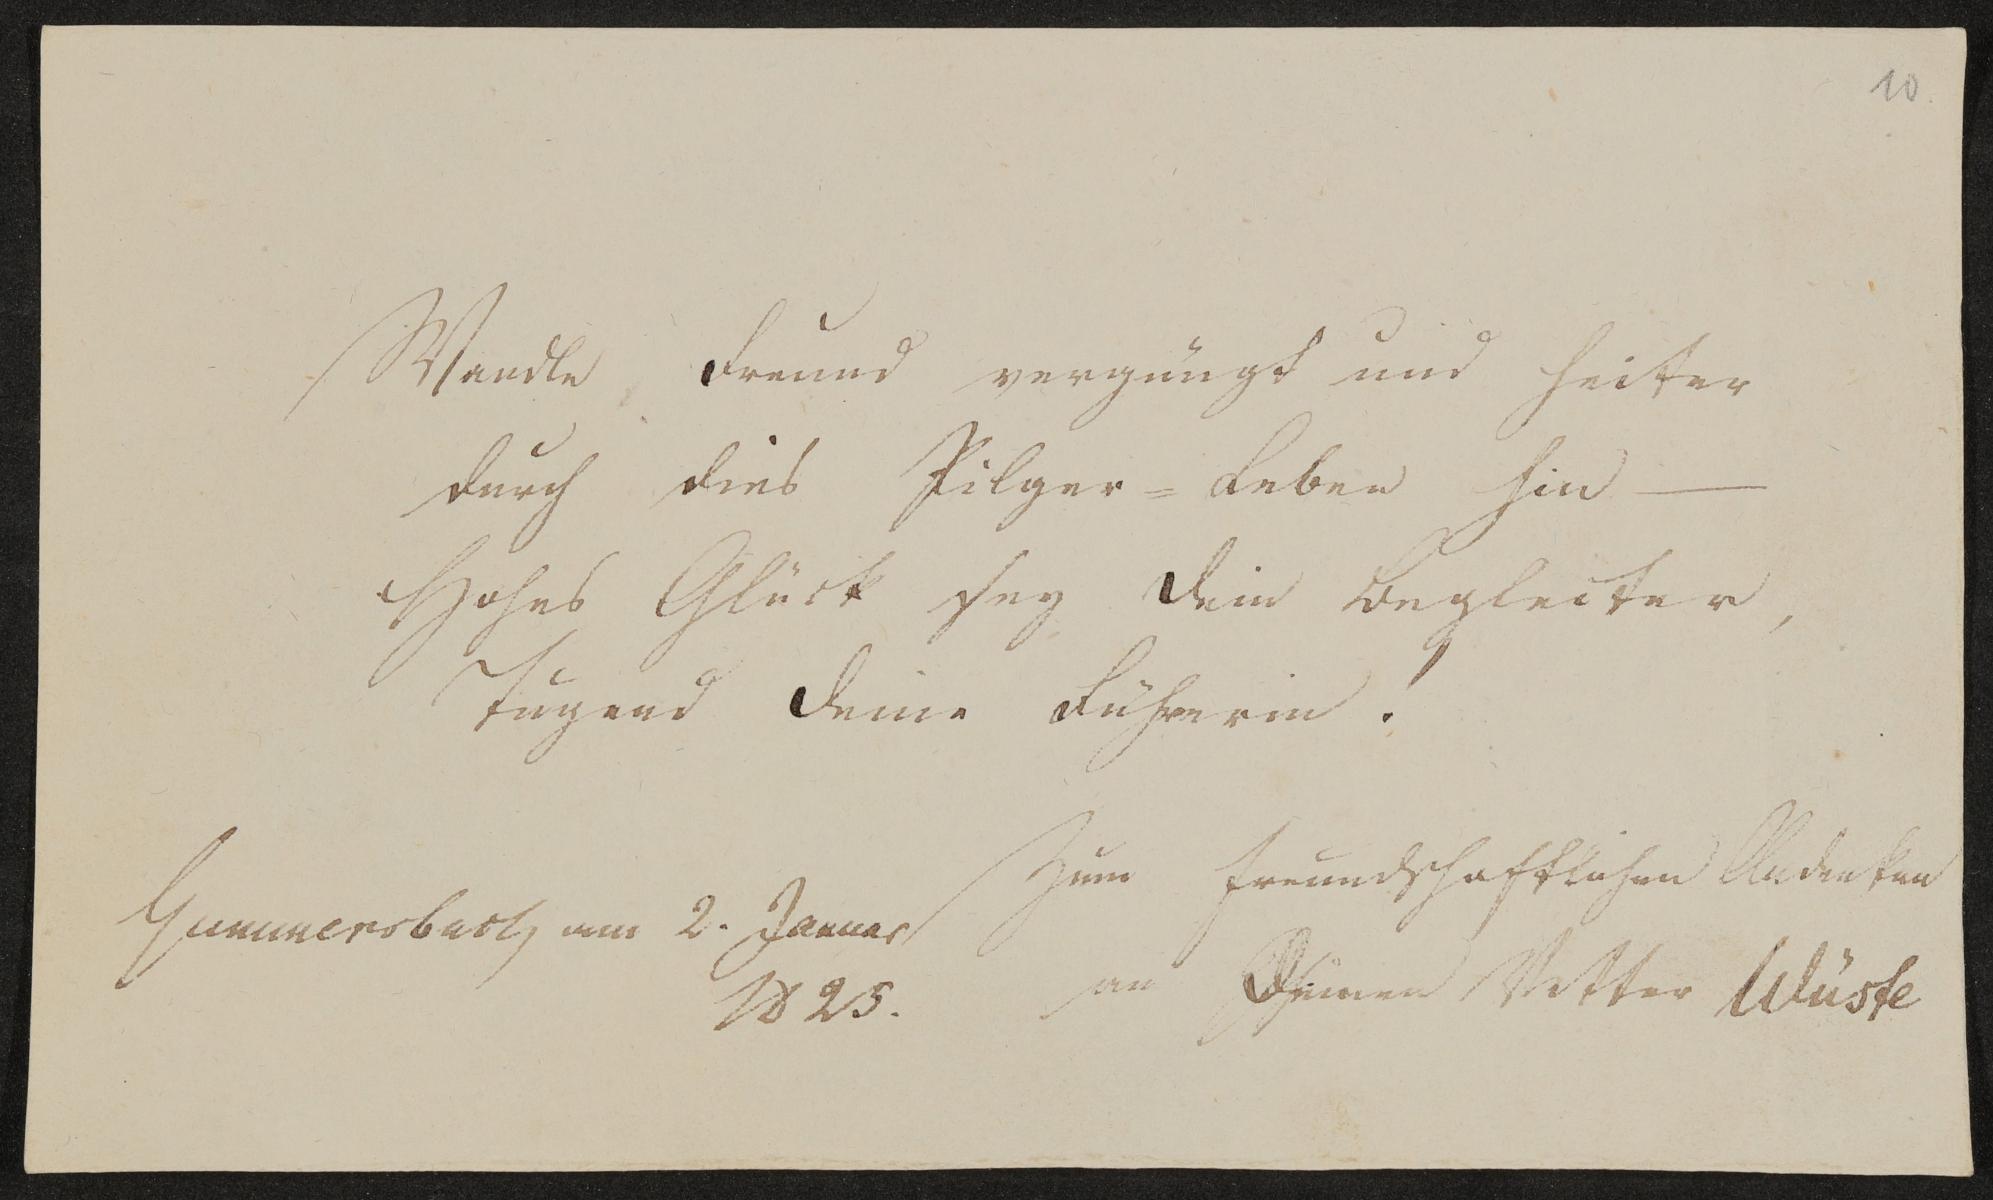 10
Wandle Freund vergnügt und heiter
durch dies Pilger=Leben hin —
Hohes Glück sey Dein Begleiter,
Tugend Deine Führerin!
Zum freundschaftlichen Andenken
Gummersbach am 2. Januar
an Deinen Vetter Wüste
1825.